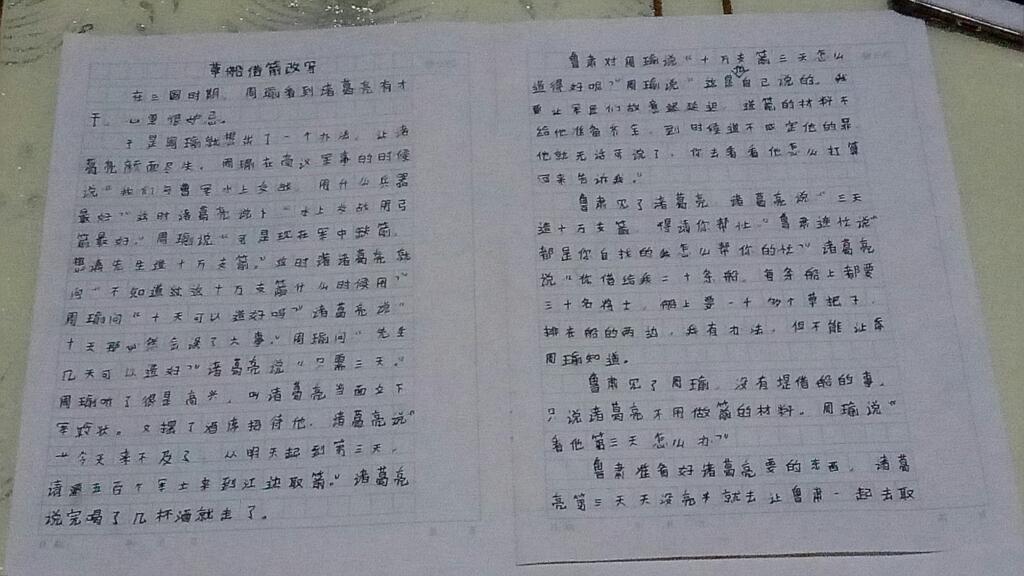 草船借箭改写
在三国时期，周瑜看到诸葛亮有才
干，心里很妒忌。
于是周瑜就想出了一个办法，让诸
葛亮颜面尽失，周瑜在商议军事的时候
说“我们与曹军水上交战，用什么兵器
最好”这时诸葛亮说“水上交战用弓
箭最好。”周瑜说“可是现在军中缺箭，
想请先生造十万支箭。”这时诸葛亮就
问“不知道这十万支箭什么时候用？”
周瑜问“十天可以造好吗？”诸葛亮说“
十天那必然会误了大事。”周瑜问“先生
几天可以造好？”诸葛亮说“只需三天。”
周瑜听了很是高兴，叫诸葛亮当面立下
军令状。又摆了酒席招待他，诸葛亮说“
今天来不及了，从明天起到第三天，
请派五百个军士来到江边取箭。”诸葛亮
说完喝了几杯酒就走了。
鲁肃对周瑜说“十万支箭三天怎么
造得好呢？”周瑜说“这是自己说的。我
要让军匠们故意延迟，造箭的材料不
给他准备齐全，到时候造不成定他的罪
他就无话可说了，你去看看他怎么打算
回来告诉我。”
鲁肃见了诸葛亮，诸葛亮说“三天
造十万支箭，得请你帮忙”鲁肃连忙说“
都是你自找的我怎么帮你的忙？”诸葛亮
说“你借给我二十条船，每条船上都要
三十名将士，船上要一千多个草把子，
排在船的两边，我有办法，但不能让
周瑜知道。
鲁肃见了周瑜，没有提借船的事，
只说诸葛亮不用做箭的材料。周瑜说“
看他第三天怎么办？”
鲁肃准备好诸葛亮要的东西，诸葛
亮第三天天没亮就去让鲁肃一起去取